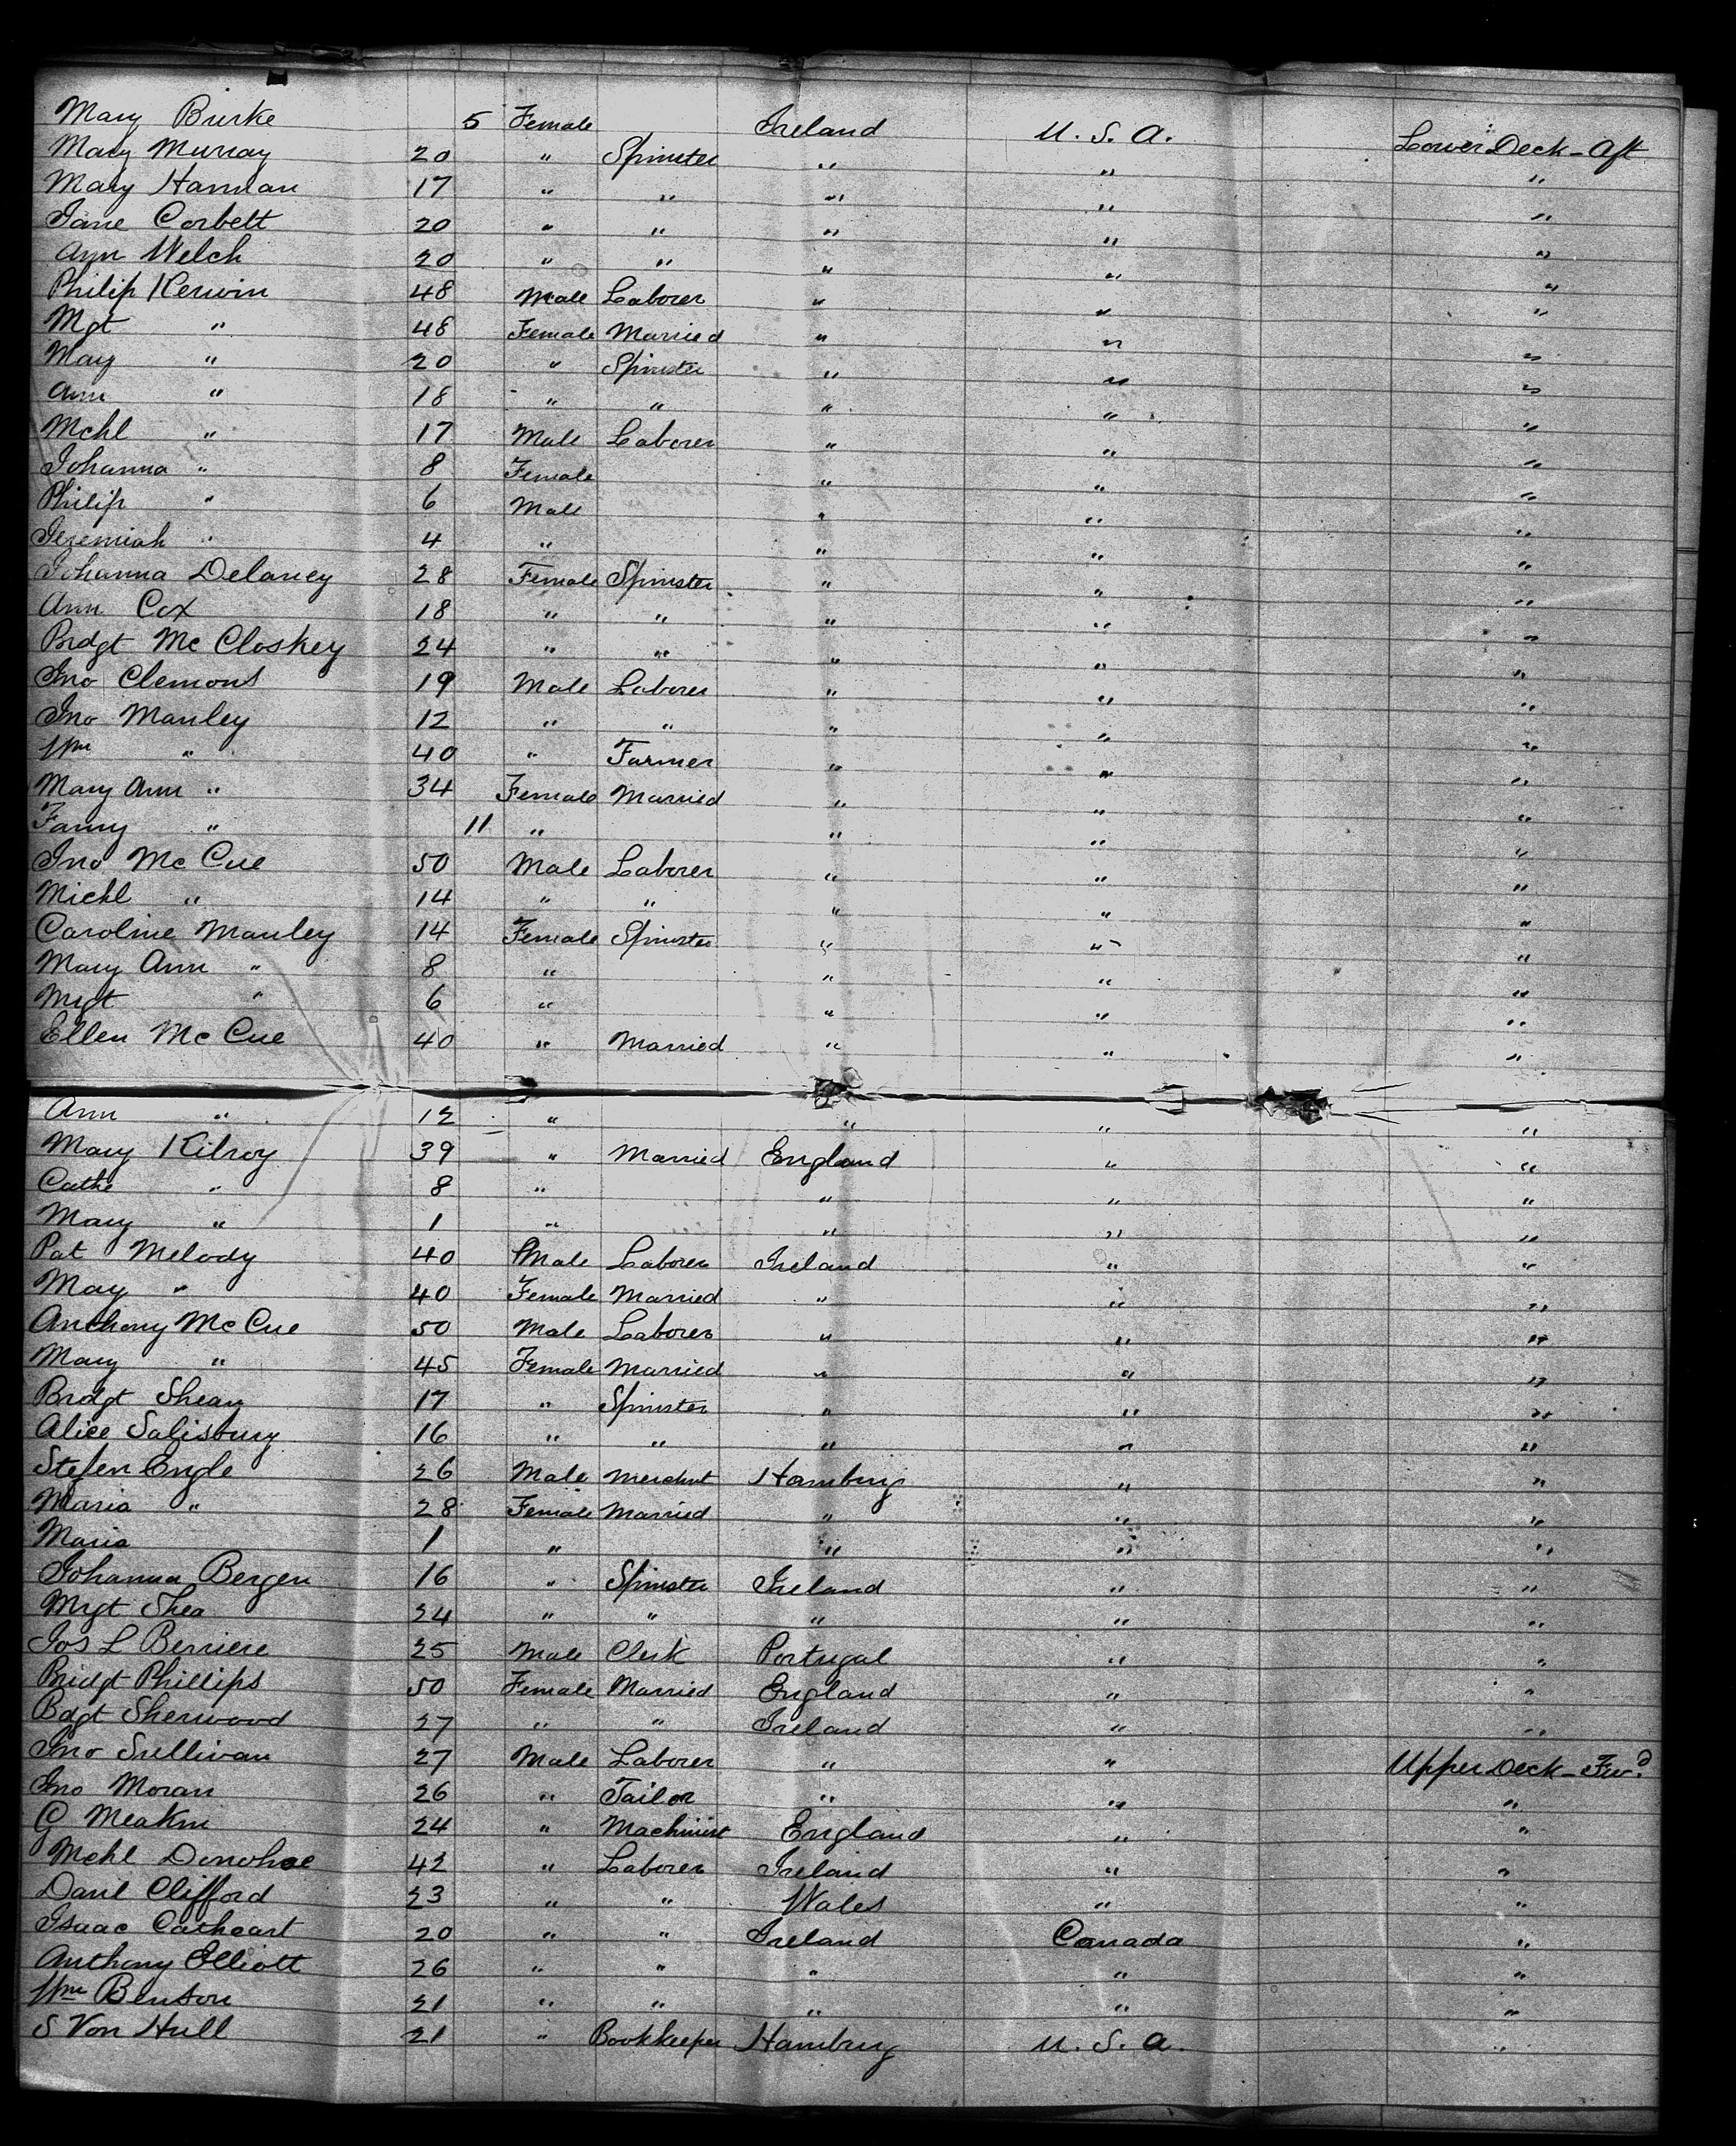 Mary Burke 5 Female Ireland U. S. A. Lower Deck - Aft
Mary Murray 20 " Spinster " " "
Mary Hannan 17 " " " " "
Jane Corbett 20 " " " " "
Ann Welch 20 " " " " "
Philip Kerwin 48 Male Laborer " " "
Mgt " 48 Female Married " " "
Mary " 20 " Spinster " " "
Ann " 18 " " " " "
Mchl " 17 Male Laborer " " "
Johanna " 8 Female " " "
Philip " 6 Male " " "
Jeremiah " 4 " " " "
Johanna Delaney 28 Female Spinster " " "
Ann Cox 18 " " " " "
Brdgt Mc Closkey 24 " " " " "
Jno Clemons 19 Male Laborer " " "
Jno Manley 12 " " " " "
Wm " 40 " Farmer " " "
Mary Ann " 34 Female Married " " "
Fanny " 11 " " " "
Jno Mc Cue 50 Male Laborer " " "
Michl " 14 " " " " "
Caroline Manley 14 Female Spinster " " "
Mary Ann " 8 " " " "
Mrgt " 6 " " " "
Ellen Mc Cue 40 " Married " " "
Ann " 12 " " " "
Mary Kilroy 39 " Married England " "
Cathe " 8 " " " "
Mary " 1 " " " "
Pat Melody 40 Male Laborer Ireland " "
Mary " 40 Female Married " " "
Anthony Mc Cue 50 Male Laborer " " "
Mary " 45 Female Married " " "
Brdgt Shean 17 " Spinster " " "
Alice Salisbury 16 " " " " "
Stefen Engle 26 Male Merchnt Hamburg " "
Maria " 28 Female Married " " "
Maria 1 " " " "
Johanna Bergen 16 " Spinster Ireland " "
Mrgt Shea 24 " " " " "
Jos L Berriere 25 Male Clerk Portugal " "
Bridgt Phillips 50 Female Married England " "
Bdgt Sherwood 27 " " Ireland " "
Jno Sullivan 27 Male Laborer " " Upper Deck - Fwd
Jno Moran 26 " Tailor " " "
G Meakin 24 " Machinist England " "
Mchl Donohoe 42 " Laborer Ireland " "
Danl Clifford 23 " " Wales " "
Isaac Cathcart 20 " " Ireland Canada "
Anthony Elliott 26 " " " " "
Wm Benson 21 " " " " "
S Von Hull 21 " Bookkeeper Hamburg U. S. A. "